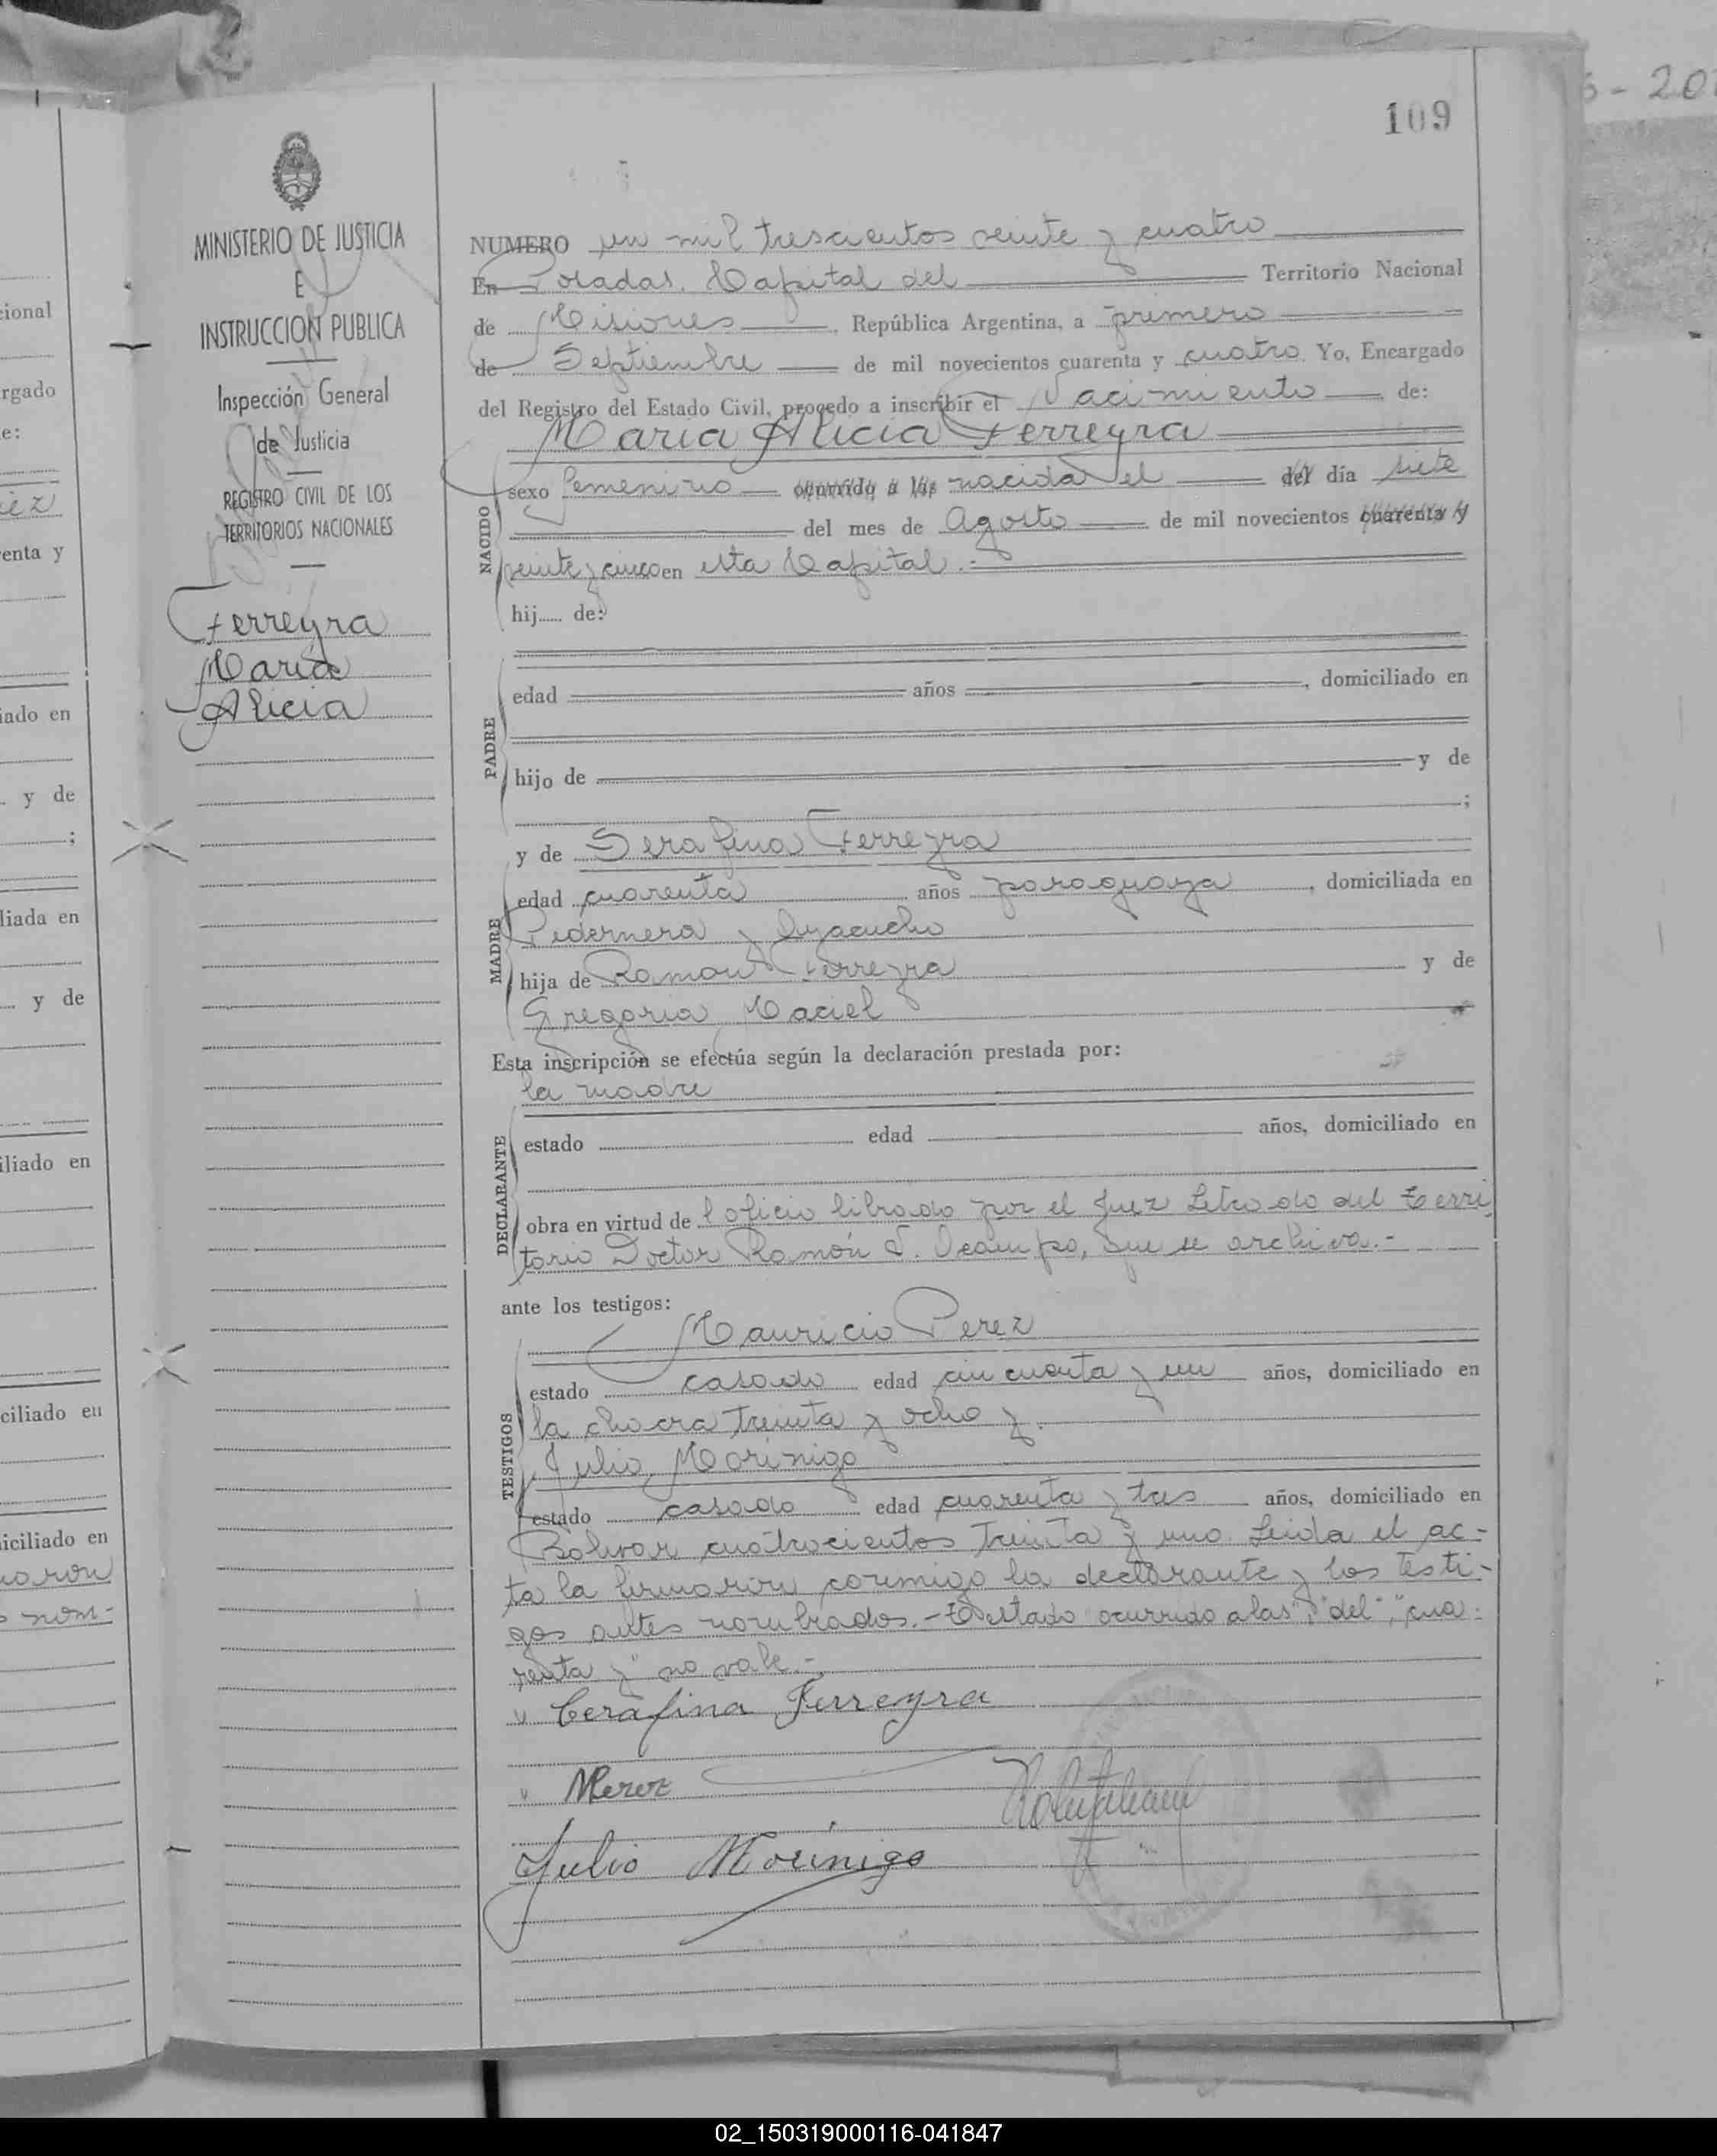 6 - 20
109
MINISTERIO DE JUSTICIA
E
INSTRUCCION PUBLICA
Inspección General
de Justicia
REGISTRO CIVIL DE LOS
TERRITORIOS NACIONALES
Ferreyra
Maria
Alicia
NUMERO un mil trescientos veinte y cuatro
En Posadas, Capital del Territorio Nacional
de Misiones, República Argentina, a primero
de Septiembre de mil novecientos cuarenta y cuatro Yo, Encargado
del Registro del Estado Civil, procedo a inscribir el Nacimiento de:
Maria Alicia Ferreyra
NACIDO
sexo femenino ocurrido a las nacida el del día siete
del mes de Agosto de mil novecientos cuarenta y
veinte y cinco en esta Capital.-
hij..... de:
PADRE
edad años , domiciliado en
hijo de y de
;
MADRE
y de Serafina Ferreyra
edad cuarenta años paraguaya , domiciliada en
Pedernera y Ayacucho
hija de Ramon Ferreyra y de
Gregoria Maciel
Esta inscripción se efectúa según la declaración prestada por:
la madre
DECLARANTE
estado edad años, domiciliado en
obra en virtud de l oficio librado por el Juez Letrado del Terri
torio Doctor Ramón Ocampo, que se archiva.-
ante los testigos:
TESTIGOS
Mauricio Perez
estado casado edad cincuenta y un años, domiciliado en
la chacra treinta y ocho y
Julio Morinigo
estado casado edad cuarenta y tres años, domiciliado en
Bolivar cuatrocientos treinta y uno. Leida el ac-
ta la firmaron conmigo la declarante y los testi-
gos antes nombrados.- Testado ocurrido a las", "del", "cua-
renta y" no vale.-
Cerafina Ferreyra
MPerez
Julio Morinigo
cional
rgado
e:
enta y
iado en
y de
;
liada en
y de
iliado en
ciliado en
iciliado en
maron
nom-
02_150319000116-041847